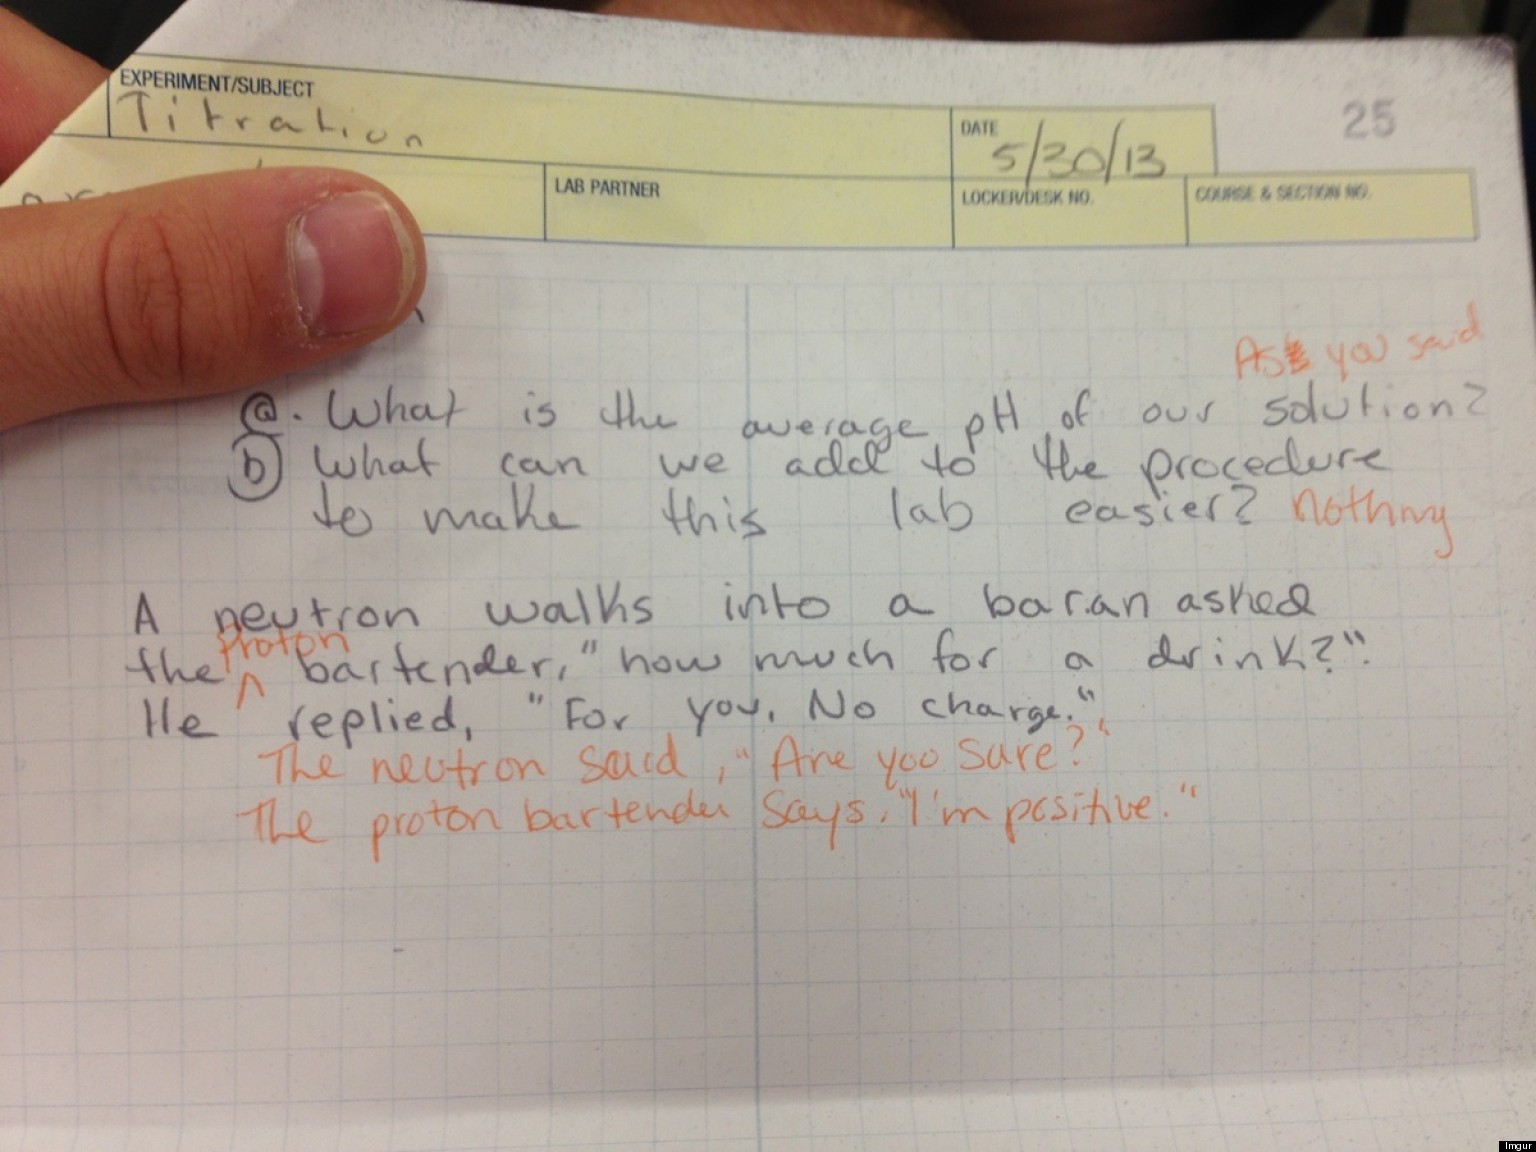 EXPERIMENT/SUBJECT
Titration
DATE
5/30/13
25
LAB PARTNER
LOCKER/DESK NO.
COURSE & SECTION NO.
As you said
@. What is the average pH of our solution?
b) What can we add to the procedure
to make this lab easier? nothing
A neutron walks into a bar.an asked
proton
the ^ bartender, "how much for a drink?".
He replied, "For you, No charge."
The neutron said, "Are you sure?"
The proton bartender says, "I'm positive."
Imgur